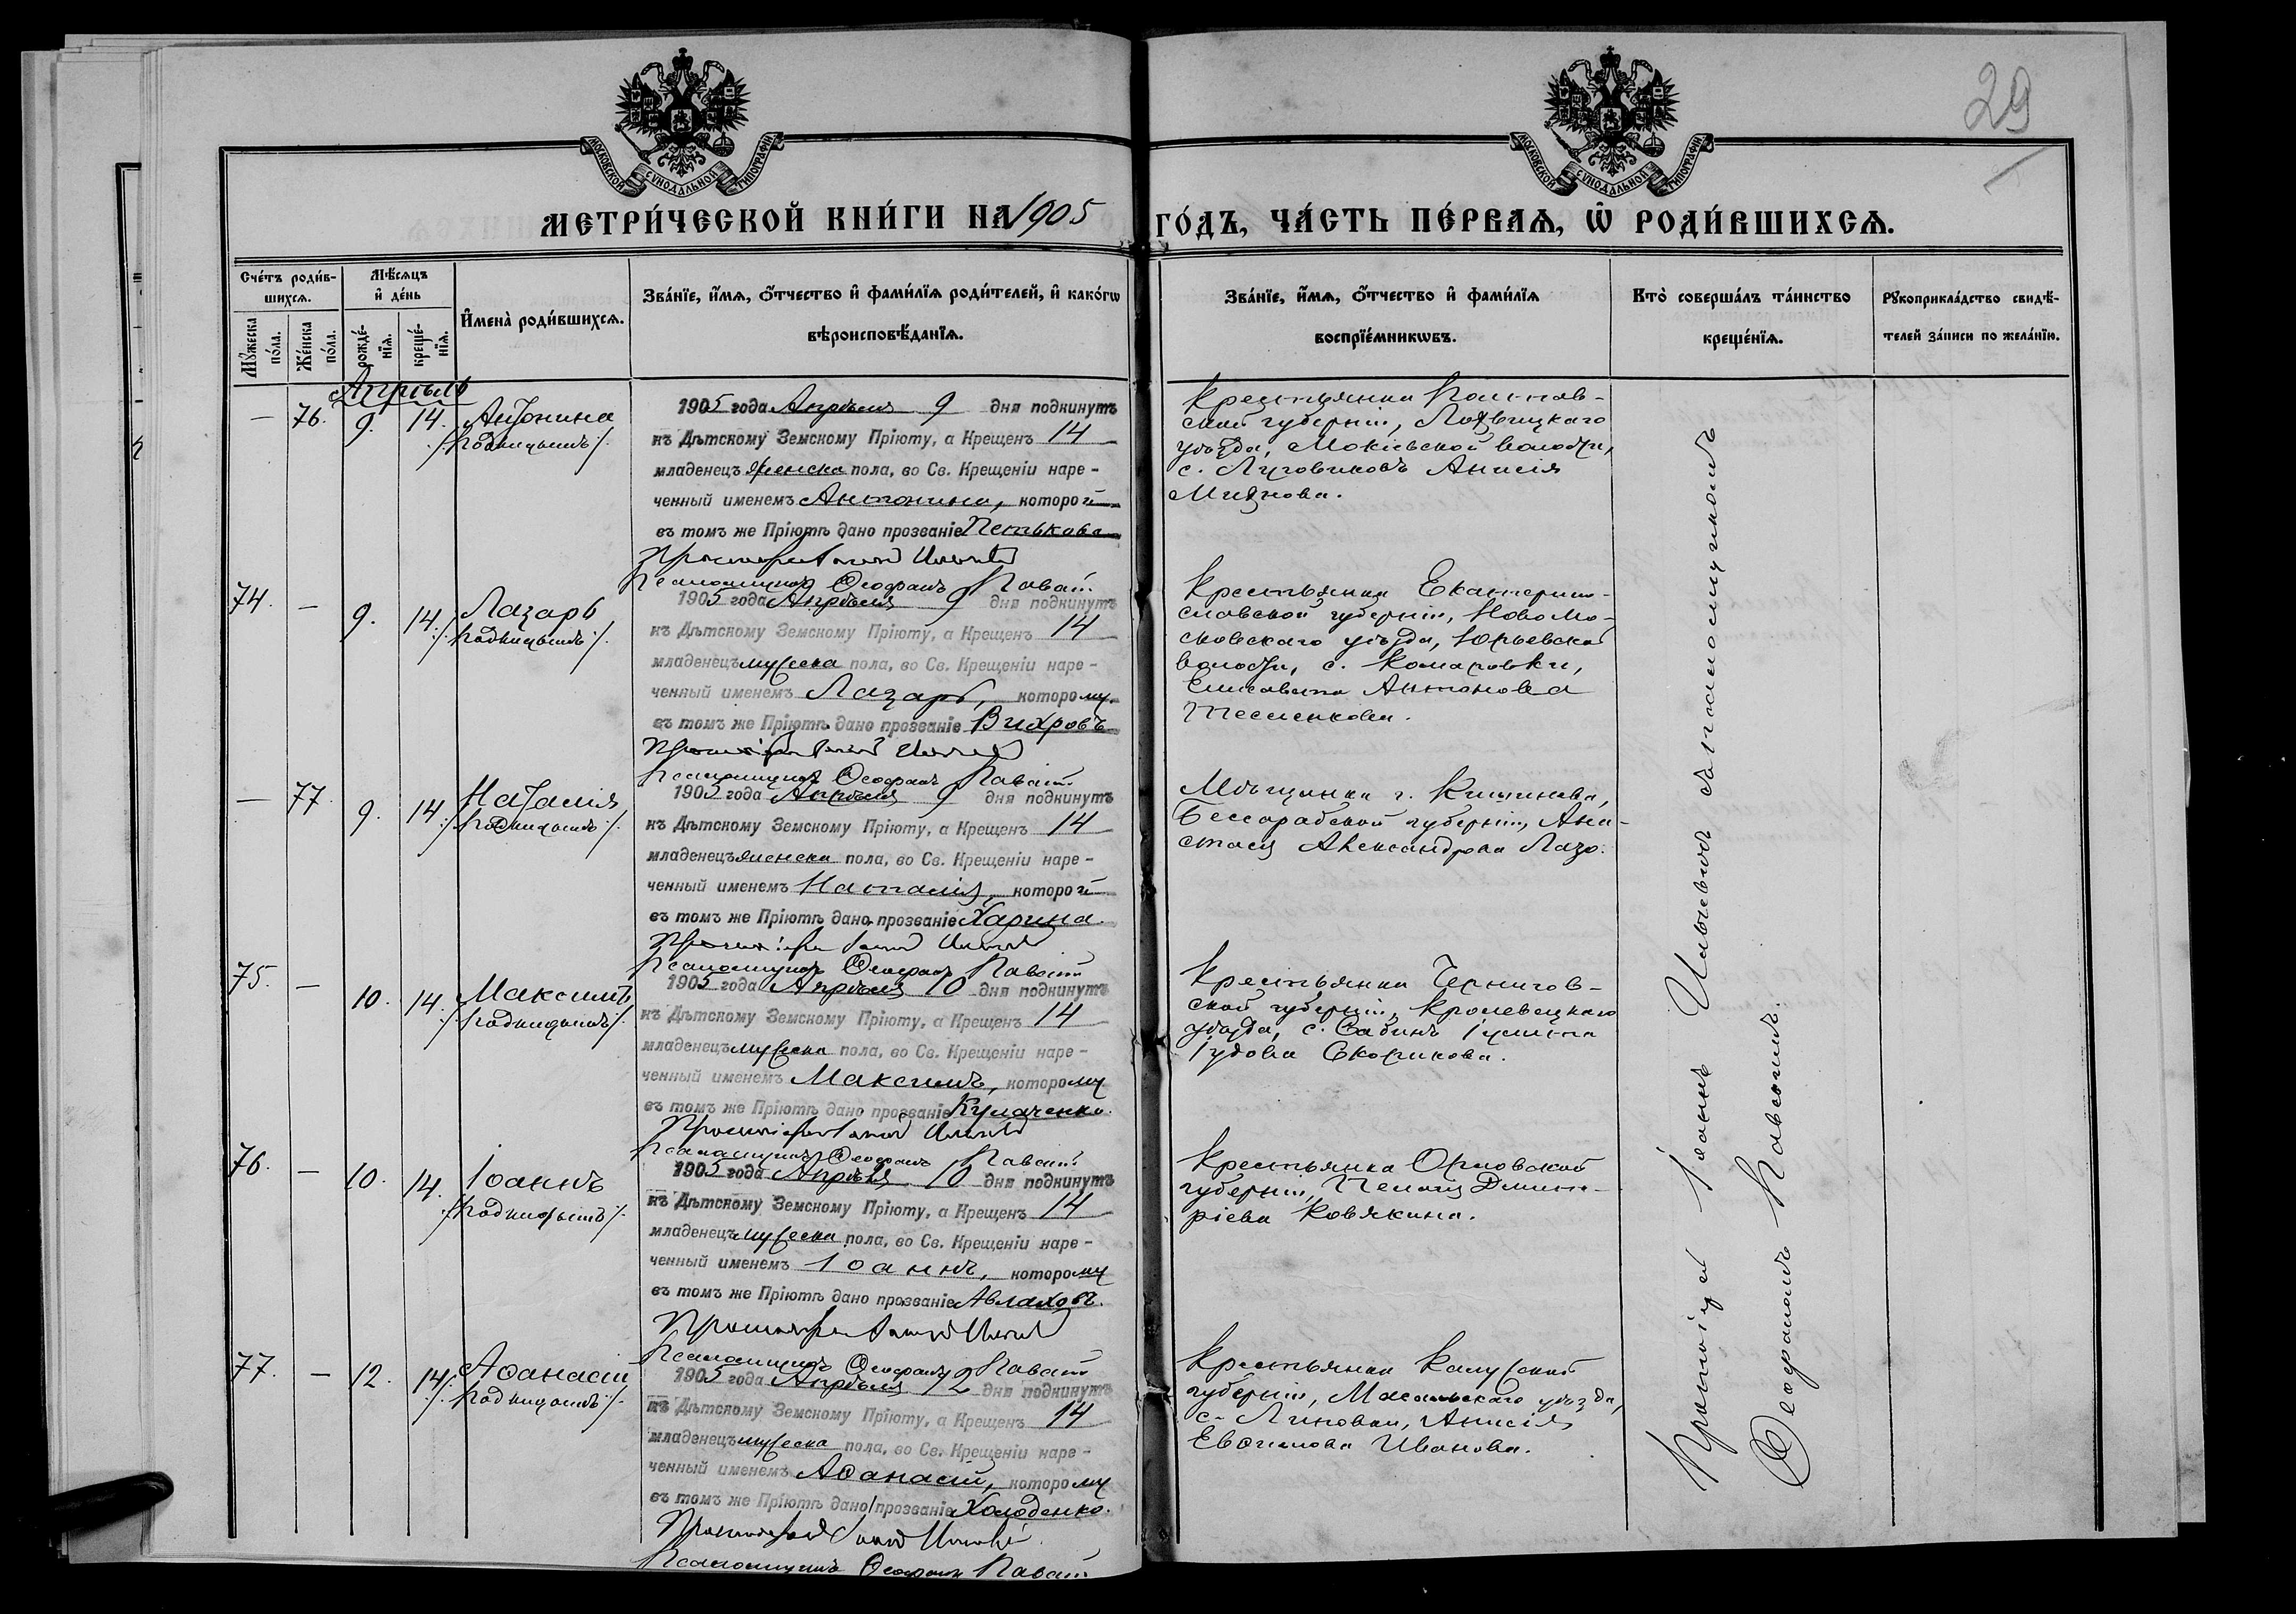 29
МОСКОВСКОЙ СѴНОДАЛЬНОЙ ТИПОГРАФІИ
МОСКОВСКОЙ СѴНОДАЛЬНОЙ ТИПОГРАФІИ
МЕТРИ́ЧЕСКОЙ КНИ́ГИ НА 1905 ГО́ДЪ, ЧА́СТЬ ПЕ́РВАѦ, Ѽ РОДИ́ВШИХСѦ.
Сче́тъ роди́в-
шихсѧ.
Мꙋ́жеска по́ла.
Же́нска по́ла.
Мѣ́сѧцъ
и҆ де́нь
рожде́-
нїѧ.
креще́-
нїѧ.
И҆мена̀ роди́вшихсѧ.
Зва́нїе, и҆́мѧ, ѻ҆́тчество и҆ фами́лїѧ роди́телей, и҆ како́гѡ
вѣроисповѣ́данїѧ.
Зва́нїе, и҆́мѧ, ѻ҆́тчество и҆ фами́лїѧ
воспрїе́мникѡвъ.
Кто̀ соверша́лъ та́инство
креще́нїѧ.
Рꙋкоприкла́дство свидѣ́-
телей за́писи по жела́нїю.
Апрѣль
— 76. 9. 14. Антонина
/: подкидышъ :/.
1905 года Апрѣля 9 дня подкинутъ
къ Дѣтскому Земскому Пріюту, а Крещенъ 14
младенецъ женска пола, во Св. Крещеніи наре-
ченный именемъ Антонина, которой
въ томъ же Пріютѣ дано прозваніе Пенькова
Протоіерей Іоаннъ
Псаломщикъ Ѳеофанъ
Крестьянка Полтав-
ской губерніи, Лохвицкаго
уѣзда, Мокіевской волости,
с. Луговиковъ Анисія
74. — 9. 14. Лазарь
/: подкидышъ :/.
1905 года Апрѣля 9 дня подкинутъ
къ Дѣтскому Земскому Пріюту, а Крещенъ 14
младенецъ мужеска пола, во Св. Крещеніи наре-
ченный именемъ Лазарь, которому
въ томъ же Пріютѣ дано прозваніе Вихровъ
Протоіерей Іоаннъ
Псаломщикъ Ѳеофанъ
Крестьянка Екатерино-
славской губерніи, Новомо-
сковскаго уѣзда, Юрьевской
волости, с. Комаровки,
Елисавета Антонова
Тесленкова.
— 77 9. 14. Наталія
/: подкидышъ :/.
1905 года Апрѣля 9 дня подкинутъ
къ Дѣтскому Земскому Пріюту, а Крещенъ 14
младенецъ женска пола, во Св. Крещеніи наре-
ченный именемъ Наталія, которой
въ томъ же Пріютѣ дано прозваніе Харина.
Протоіерей Іоаннъ
Псаломщикъ Ѳеофанъ
Мѣщанка г. Кишинева,
Бессарабской губерніи, Ана-
стасія Александрова Лазо.
75. — 10. 14. Максимъ
/: подкидышъ :/.
1905 года Апрѣля 10 дня подкинутъ
къ Дѣтскому Земскому Пріюту, а Крещенъ 14
младенецъ мужеска пола, во Св. Крещеніи наре-
ченный именемъ Максимъ, которому
въ томъ же Пріютѣ дано прозваніе
Протоіерей Іоаннъ
Псаломщикъ Ѳеофанъ
Крестьянка Чернигов-
ской губерніи, Кролевецкаго
уѣзда, с. Іустина
Іудова Скорикова.
76. — 10. 14. Іоаннъ
/: подкидышъ :/.
1905 года Апрѣля 10 дня подкинутъ
къ Дѣтскому Земскому Пріюту, а Крещенъ 14
младенецъ мужеска пола, во Св. Крещеніи наре-
ченный именемъ Іоаннъ, которому
въ томъ же Пріютѣ дано прозваніе
Протоіерей Іоаннъ
Псаломщикъ Ѳеофанъ
Крестьянка Орловской
губерніи, Пелагія Дмит-
ріева Ковякина.
77. — 12. 14. Аѳанасій
/: подкидышъ :/.
1905 года Апрѣля 12 дня подкинутъ
къ Дѣтскому Земскому Пріюту, а Крещенъ 14
младенецъ мужеска пола, во Св. Крещеніи наре-
ченный именемъ Аѳанасій, которому
въ томъ же Пріютѣ дано прозваніе Холоденко.
Протоіерей Іоаннъ
Псаломщикъ Ѳеофанъ
Крестьянка Калужской
губерніи, Масальскаго уѣзда,
с. Липовки, Анисія
Евѳимова Иванова.
Протоіерей Іоаннъ Ильичевъ съ псаломщикомъ
Ѳеофаномъ